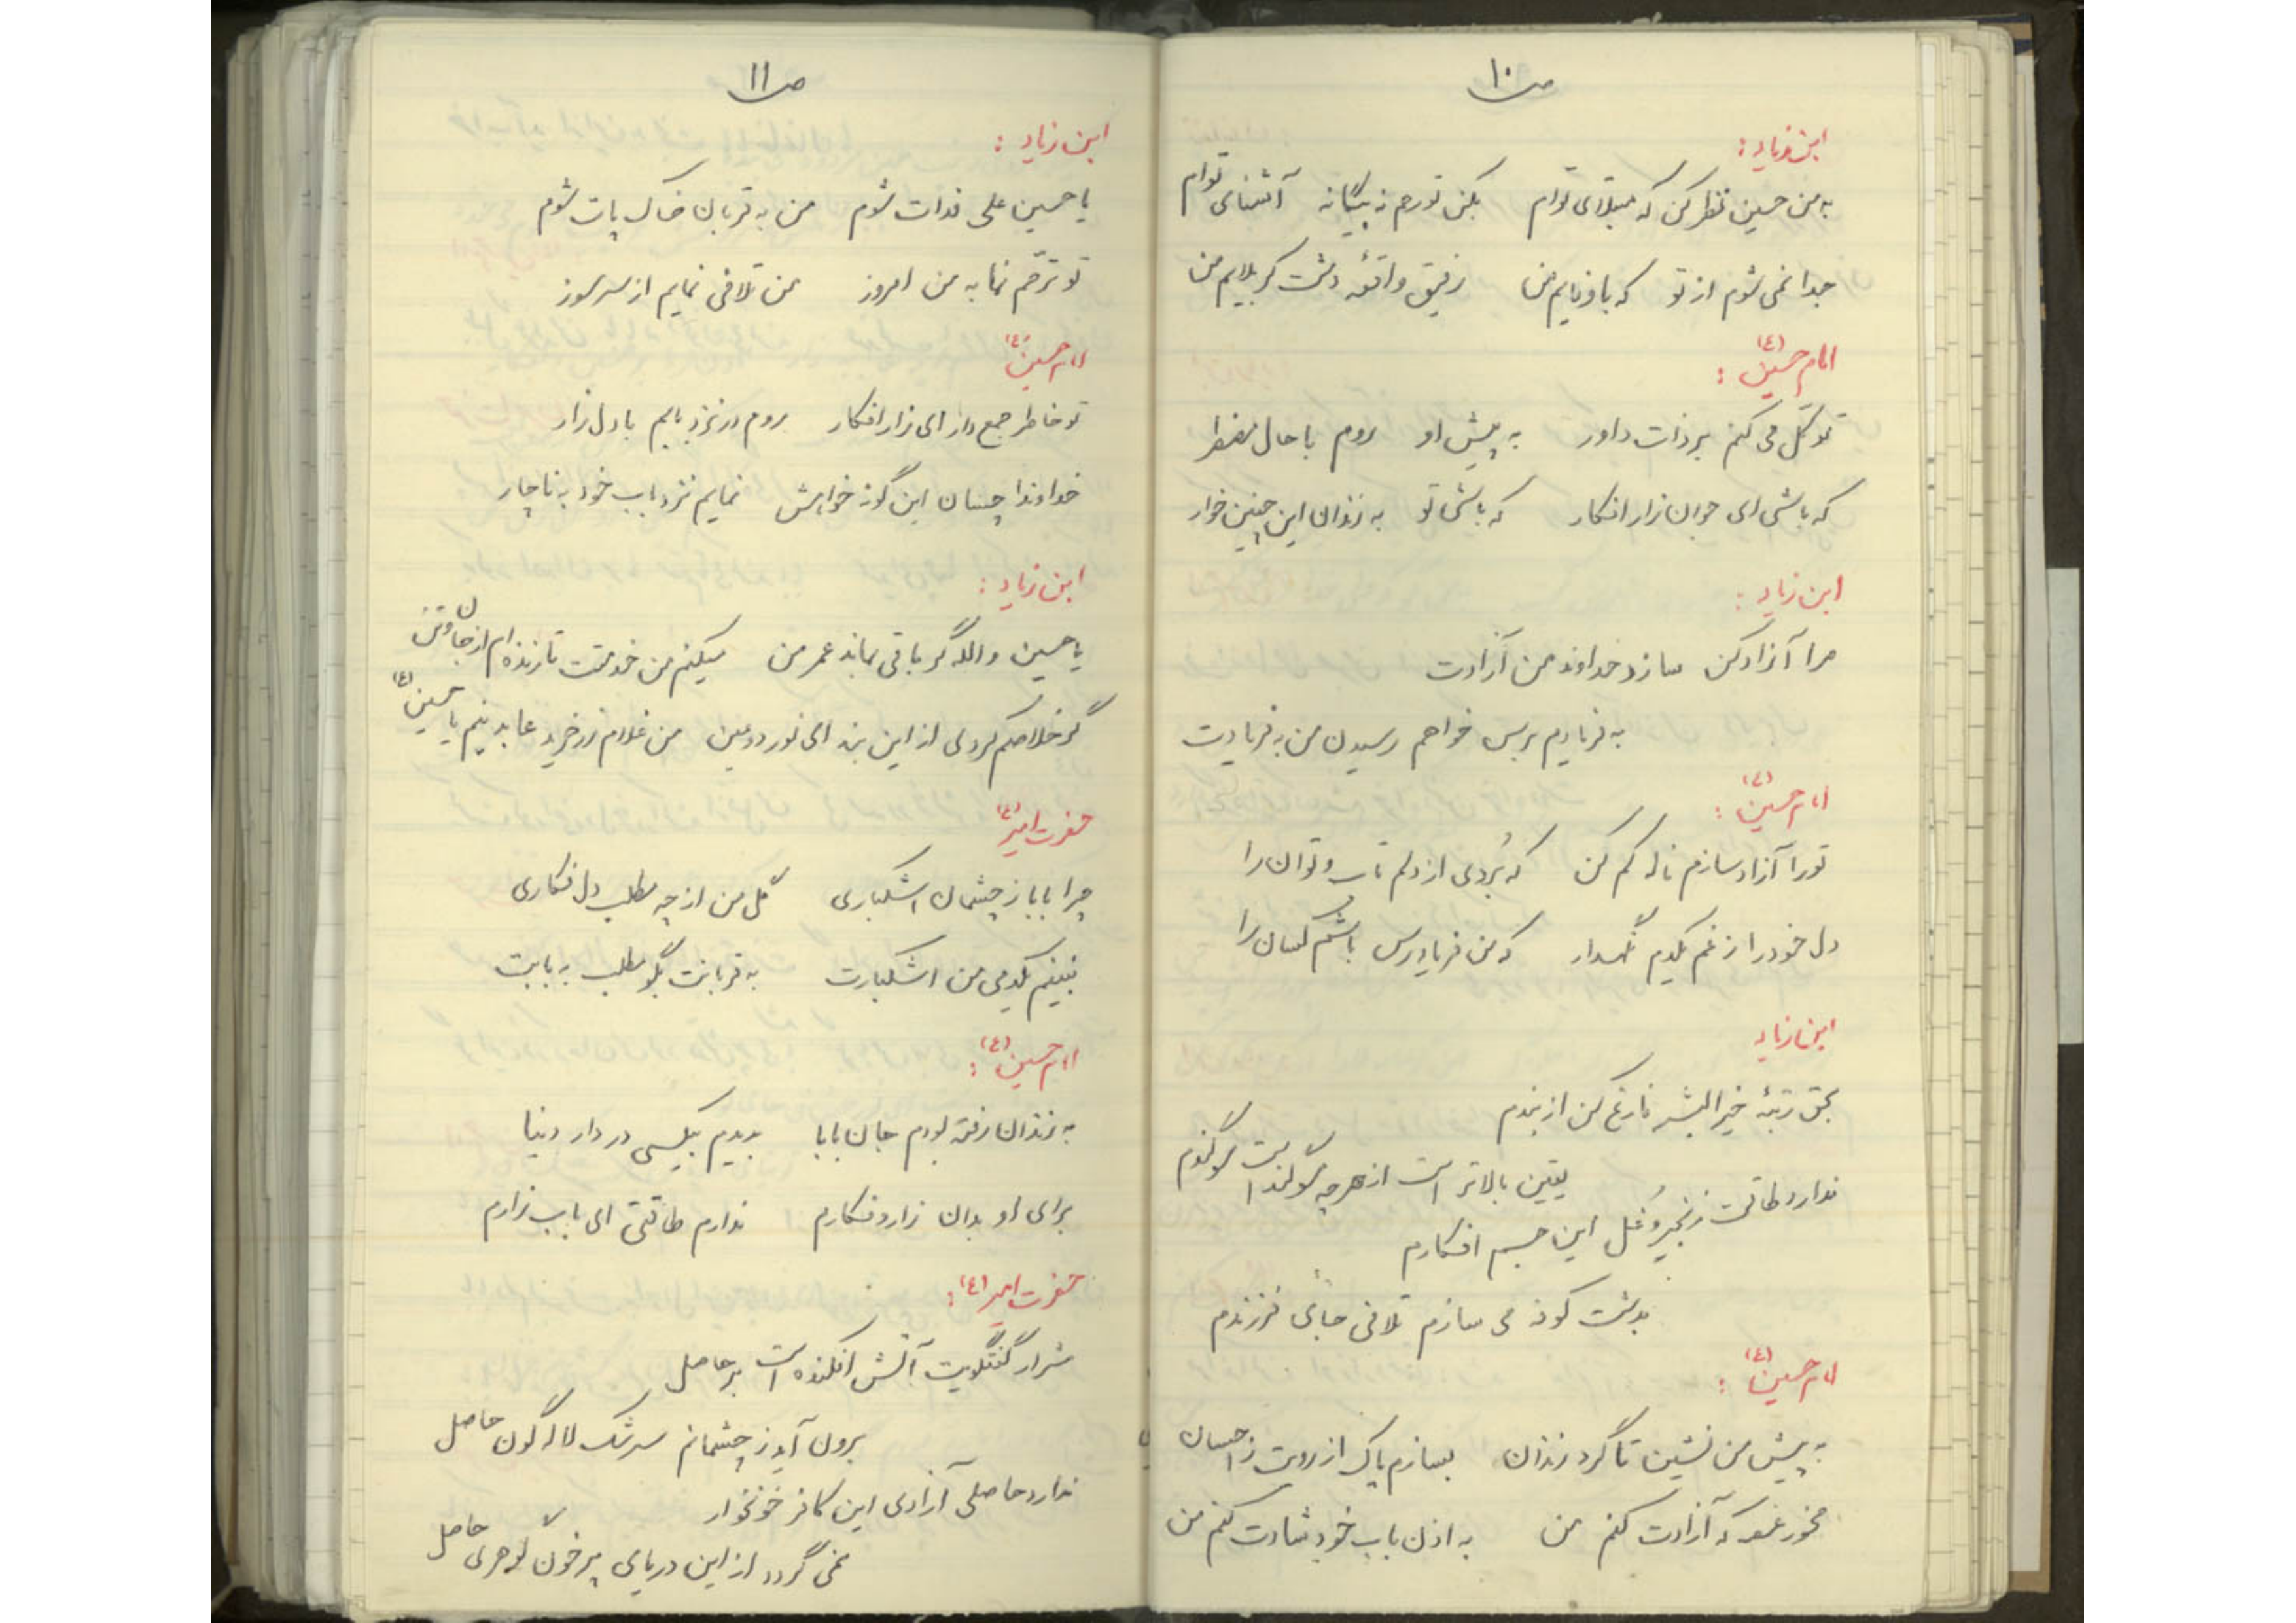 ص ۱۰
ابن زیاد :
به من حسین نظر کن که مبتلای توام بکن تو رحم نه بیگانه آشنای توام
جدا نمی شوم از تو که باوفایم من رفیق واقعۀ دشت کربلایم من
امام حسین (ع) :
توکّل می کنم بر ذات داور به پیش او روم با حال مضطر
که باشی ای جوان زار افکار که باشی تو به زندان این چنین خوار
ابن زیاد :
مرا آزاد کن سازد خداوند من آزادت
به فریادم برس خواهم رسیدن من به فریادت
امام حسین (ع) :
تو را آزاد سازم ناله کم کن که بُردی از دلم تاب و توان را
دل خود را ز غم یکدم نگهدار که من فریادرس باشم کسان را
ابن زیاد
بحق رتبۀ خیرالبشر فارغ کن از بندم
یقین بالاتر است از هر چه سوگند است سوگندم
ندارد طاقت زنجیر و غُل این جسم افکارم
بدشت کوفه می سازم تلافی جای فرزندم
امام حسین (ع) :
به پیش من نشین تا گرد زندان بسازم پاک از رویت ز احسان
مخور غصه که آزادت کنم من به اذن باب خود شادت کنم من
ص ۱۱
ابن زیاد :
یا حسین علی فدات شوم من به قربان خاک پات شوم
تو ترحّم نما به من امروز من تلافی نمایم از سر سوز
امام حسین (ع)
تو خاطر جمع دار ای زار افکار بروم در نزد بابم با دل زار
خداوندا چسان این گونه خواهش نمایم نزد باب خود به ناچار
ابن زیاد :
یا حسین والله گر باقی بماند عمر من میکنم من خدمتت تا زنده ام از جان و تن
گر خلاصم کردی از این بند ای نور دو عین من غلام زر خرید عابدینم یا حسین (ع)
حضرت امیر (ع)
چرا بابا ز چشمان اشکباری گل من از چه مطلب دل فکاری
نبینم یکدمی من اشکبارت به قربانت بگو مطلب به بابت
امام حسین (ع) :
به زندان رفته بودم جان بابا بدیدم بیکسی در دار دنیا
برای او بدان زار و فکارم ندارم طاقتی ای باب زارم
حضرت امیر (ع) :
شرار گفتگویت آتش افکنده است بر حاصل
برون آید ز چشمانم سرشک لاله گون حاصل
ندارد حاصلی آزادی این کافر خونخوار
نمی گردد از این دریای پر خون گوهری حاصل